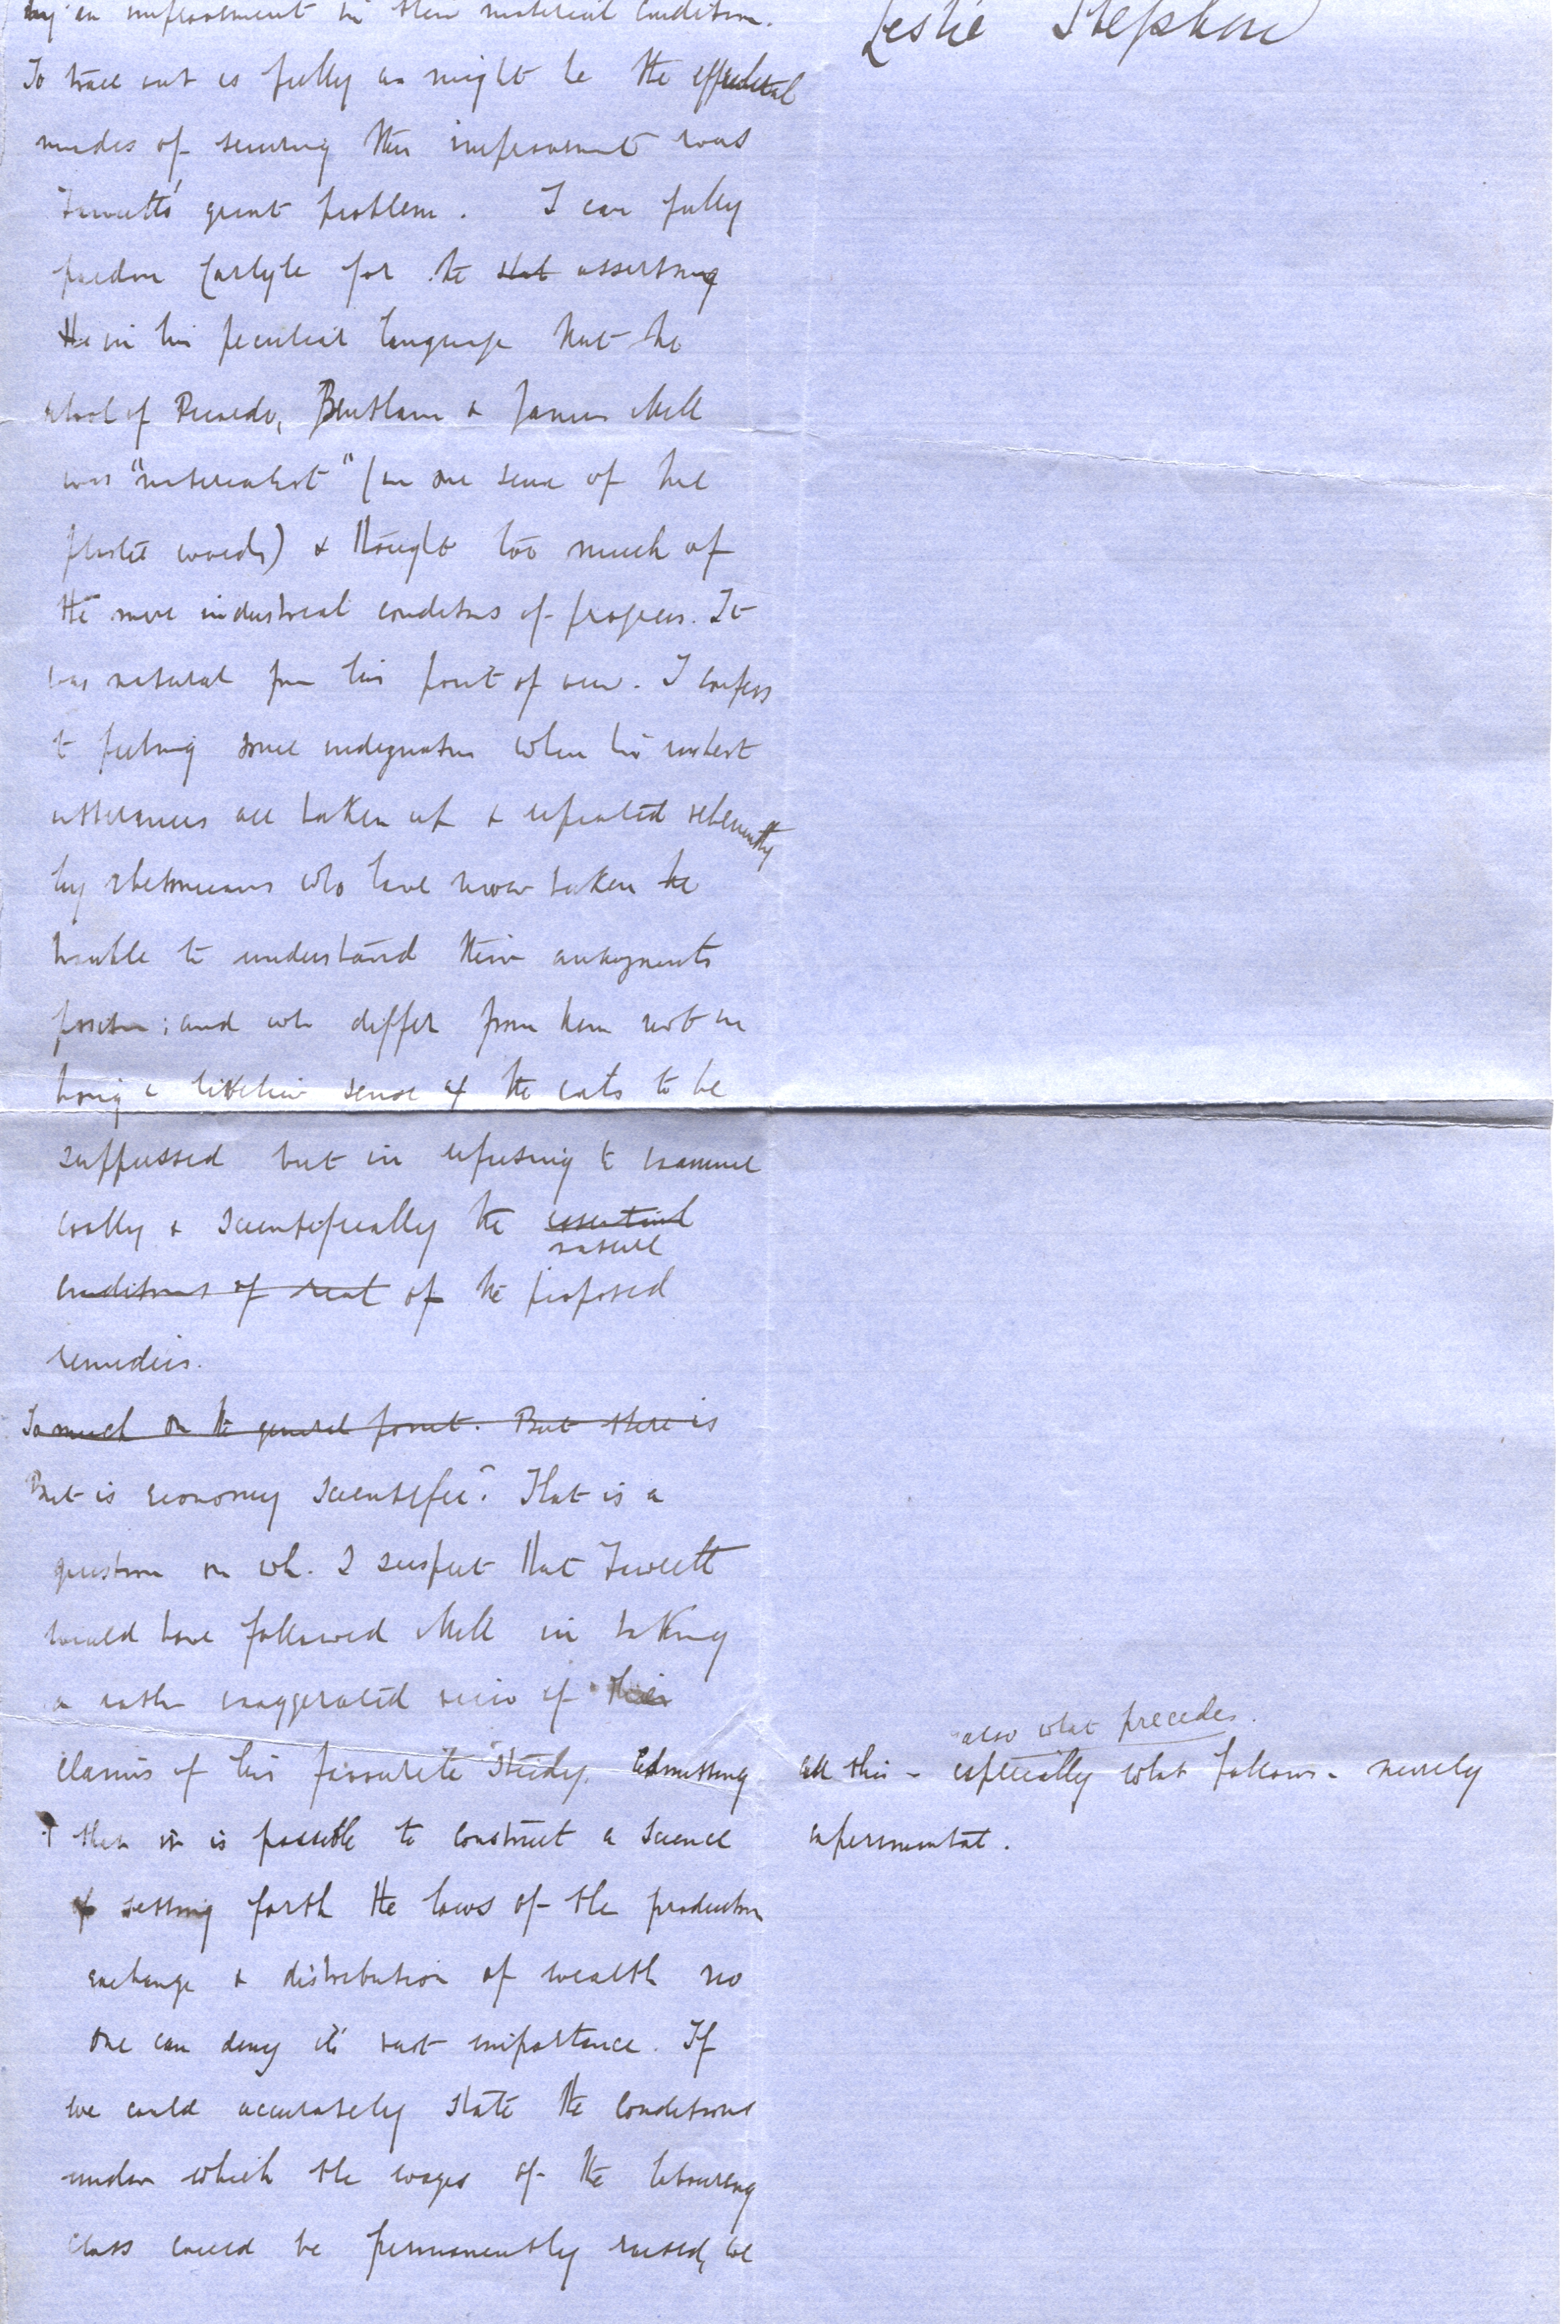 by an improvement in their material condition.
To trace out as fully as might be the effectual
modes of securing this improvement was
Fawcett's great problem. I can fully
pardon Carlyle for the that asserting
in his peculiar language that the
school of Ricardo, Bentham & James Mill
was "materialist" (in one sense of that
plastic word) & thought too much of
the mere industrial conditions of progress. It
was natural from his point of view. I confess
to feeling some indignation when his
utterances are taken up & repeated vehemently
by rhetoricians who have never taken the
trouble to understand their antagonists
position; and who differ from them not in
having a livelier sense of the evils to be
suppressed but in refusing to examine
coolly & scientifically the essential
nature
conditions of real of the proposed
remedies.
So much on the general point. But there is
But is economy scientific? That is a
question on wh. I suspect that Fawcett
would have followed Mill in taking
a rather exaggerated view of their
claims of his favourite study. Admitting
that it is possible to construct a science
setting forth the laws of the production
exchange & distribution of wealth no
one can deny its vast importance. If
we could accurately state the conditions
under which the wages of the labouring
class could be permanently raised, we
Leslie Stephen
also what precedes.
All this - especially what follows - merely
experimental.